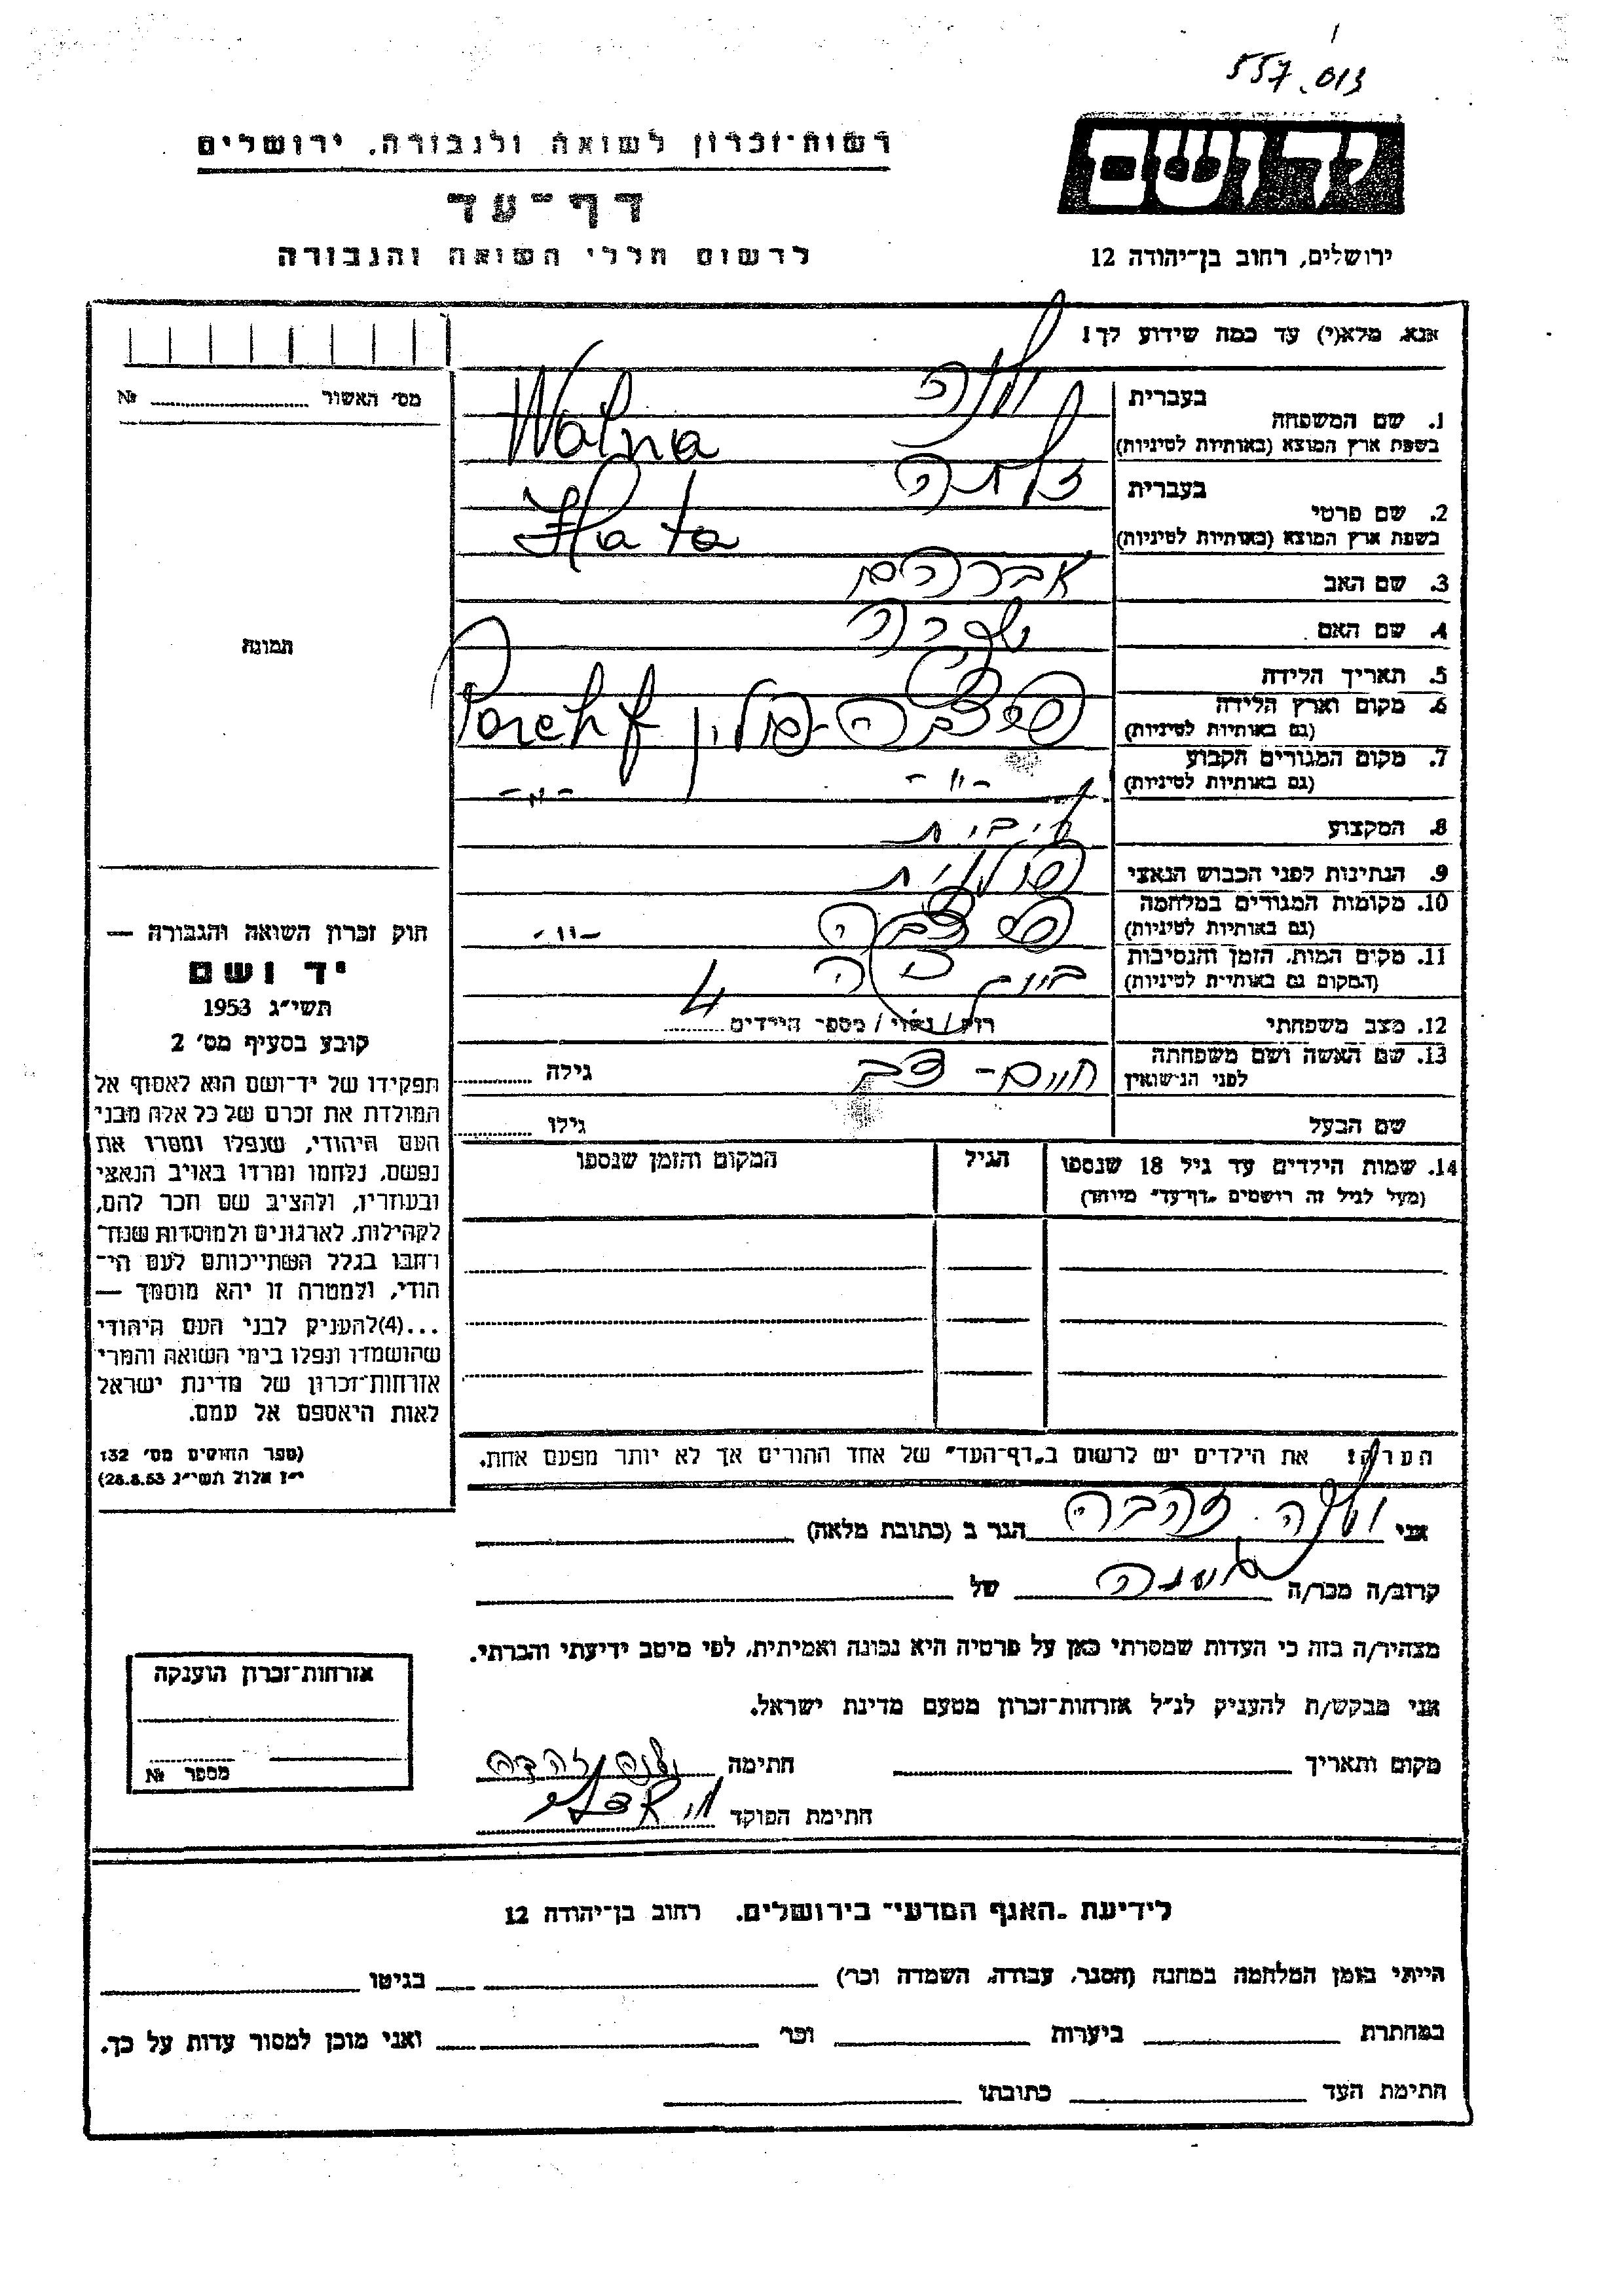 557.013
יד ושם
רשות־זכרון לשואה ולגבורה, ירושלים
דף־עד
לרשום חללי השואה והגבורה
ירושלים, רחוב בן־יהודה 12
אנא, מלא(י) עד כמה שידוע לך!
מס׳ האשור № 
1. שם המשפחה
בעברית ולנה
בשפת ארץ המוצא (באותיות לטיניות) Walna
2. שם פרטי
בעברית זלתה
בשפת ארץ המוצא (באותיות לטיניות) Zlata
3. שם האב אברהם
4. שם האם
תמונה
5. תאריך הלידה
6. מקום וארץ הלידה
(גם באותיות לטיניות) פולין
7. מקום המגורים הקבוע
(גם באותיות לטיניות) -"- -"-
8. המקצוע
9. הנתינות לפני הכבוש הנאצי פולנית
10. מקומות המגורים במלחמה
(גם באותיות לטיניות) -"-
11. מקום המות, הזמן והנסיבות
(המקום גם באותיות לטיניות)
12. מצב משפחתי רוק / נשוי / מספר הילדים 4
13. שם האשה ושם משפחתה
לפני הנישואין גילה
חיים-
שם הבעל גילו
14. שמות הילדים עד גיל 18 שנספו
(מעל לגיל זה רושמים „דף־עד" מיוחד)
הגיל
המקום והזמן שנספו
חוק זכרון השואה והגבורה —
יד ושם
תשי״ג 1953
קובע בסעיף מס׳ 2
תפקידו של יד־ושם הוא לאסוף אל
המולדת את זכרם של כל אלה מבני
העם היהודי, שנפלו ומסרו את
נפשם, נלחמו ומרדו באויב הנאצי
ובעוזריו, ולהציב שם וזכר להם,
לקהילות, לארגונים ולמוסדות שנח־
רבו בגלל השתייכותם לעם הי־
הודי, ולמטרה זו יהא מוסמך —
...(4)להעניק לבני העם היהודי
שהושמדו ונפלו בימי השואה והמרי
אזרחות־זכרון של מדינת ישראל
לאות היאספם אל עמם.
(ספר החוקים מס׳ 132
י״ז אלול תשי״ג 28.8.53)
הערה: את הילדים יש לרשום ב„דף־העד" של אחד ההורים אך לא יותר מפעם אחת.
אני ולנה זהבה הגר ב (כתובת מלאה)
קרוב/ה מכר/ה של
מצהיר/ה בזה כי העדות שמסרתי כאן על פרטיה היא נכונה ואמיתית, לפי מיטב ידיעתי והכרתי.
אני מבקש/ת להעניק לנ״ל אזרחות־זכרון מטעם מדינת ישראל.
מקום ותאריך חתימה ולנה זהבה
חתימת הפוקד
אזרחות־זכרון הוענקה
מספר №
לידיעת „האגף המדעי" בירושלים, רחוב בן־יהודה 12
הייתי בזמן המלחמה במחנה (הסגר, עבודה, השמדה וכו׳) בגיטו
במחתרת ביערות וכו׳ ואני מוכן למסור עדות על כך.
חתימת העד כתובתו